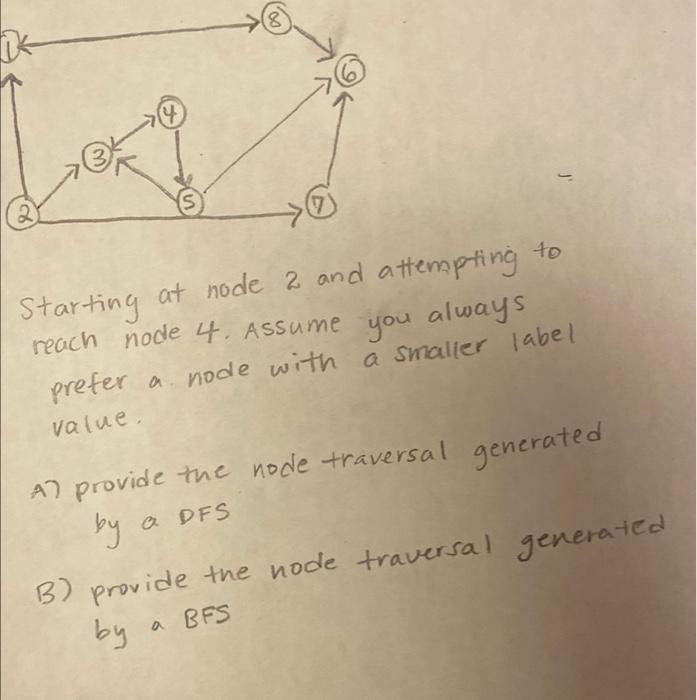 8
1
6
4
3
5
7
2
Starting at node 2 and attempting to
reach node 4. Assume you always
prefer a node with a smaller label
value.
A) provide the node traversal generated
by a DFS
B) provide the node traversal generated
by a BFS